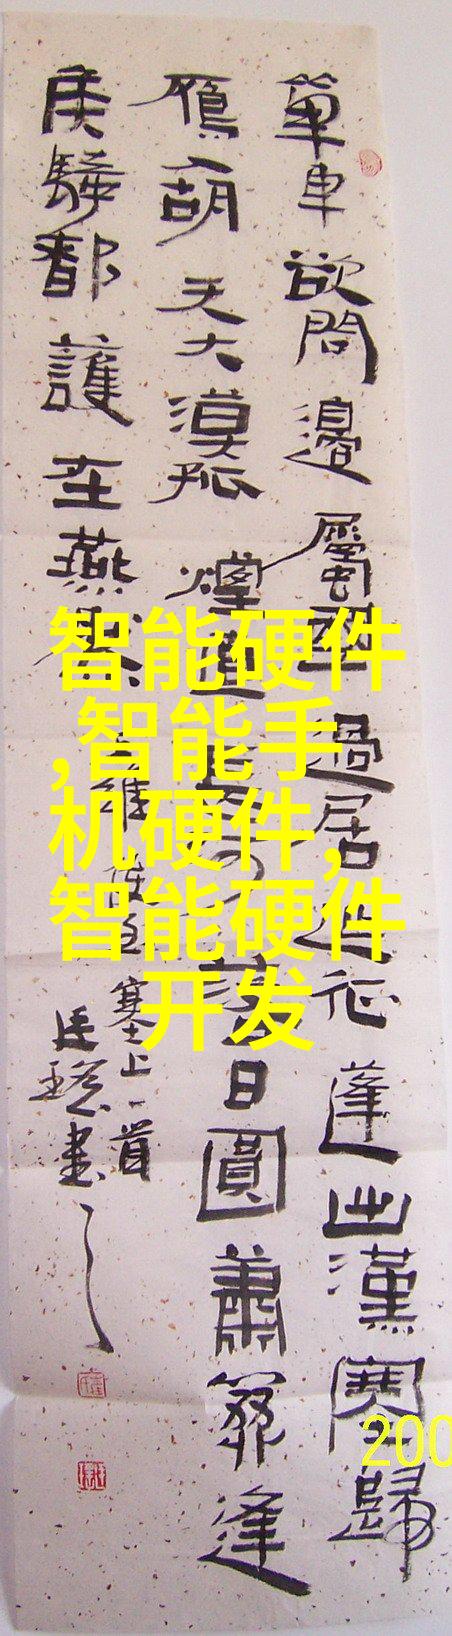 單車欲問邊屬國過居延征蓬出漢塞歸
鴈入胡天大漠孤煙直長河落日圓蕭關逢
候騎都護在燕然
王維使至塞上一首
書
智能硬件
,智能手
机硬件,
智能硬件
开发
200